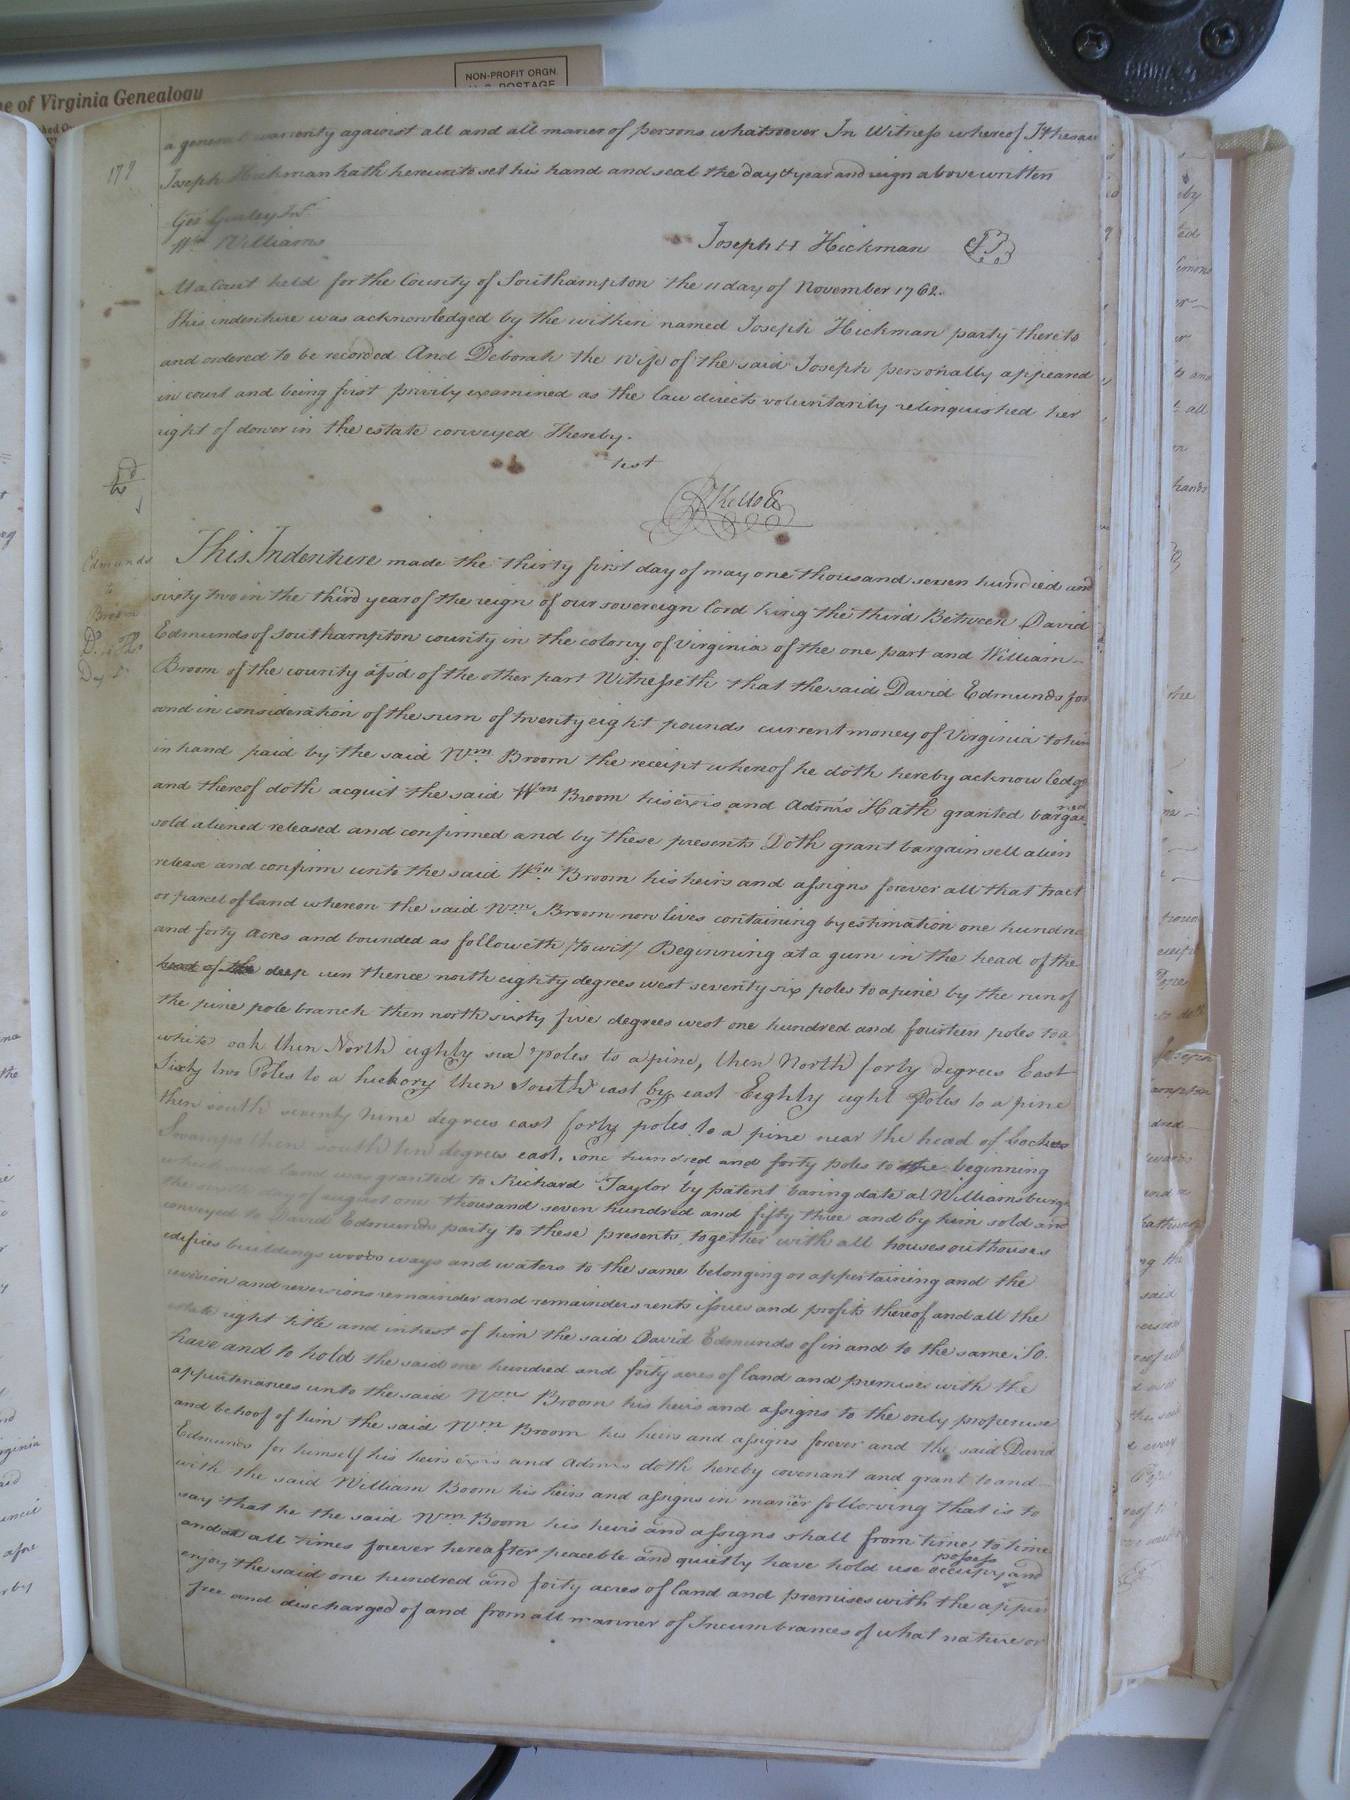 NON-PROFIT ORGN.
U.S. POSTAGE
e of Virginia Genealogy
179
a general warrenty against all and all maner of persons whatsoever In Witness whereof
Joseph Hickman hath hereunto set his hand and seal the day & year and reign above written
Geo Gurley Jnr
Wm Williams
Joseph H Hickman
At a Court held for the County of Southampton the 11 day of November 1762.
This indenture was acknowledged by the within named Joseph Hickman party thereto
and ordered to be recorded And Deborah the Wife of the said Joseph personally appeared
in court and being first privily examined as the law directs voluntarily relinquished her
right of dower in the estate conveyed Thereby.
test
Edmunds
to
Broom
This Indenture made the thirty first day of may one thousand seven hundred and
sixty two in the third year of the reign of our sovereign lord king the third Between David
Edmunds of Southampton county in the colony of Virginia of the one part and William
Broom of the county afsd of the other part Witnesseth that the said David Edmunds for
and in consideration of the sum of twenty eight pounds current money of Virginia to him
in hand paid by the said Wm Broom the receipt whereof he doth hereby acknowledge
and thereof doth acquit the said Wm Broom his exrs and Admrs Hath granted bargained
sold aliened released and confirmed and by these presents Doth grant bargain sell alien
release and confirm unto the said Wm Broom his heirs and assigns forever all that tract
or parcel of land whereon the said Wm Broom now lives containing by estimation one hundred
and forty Acres and bounded as followeth /to wit/ Beginning at a gum in the head of the
head of the deep run thence north eighty degrees west seventy six poles to a pine by the run of
the pine pole branch then north sixty five degrees west one hundred and fourteen poles to a
white oak then North eighty six poles to a pine, then North forty degrees East
Sixty two Poles to a hickory then South east by east Eighty eight Poles to a pine
then south seventy nine degrees east forty poles to a pine near the head of
Swamp then south ten degrees east, one hundred and forty poles to the beginning
which said land was granted to Richard Taylor by patent baring date at Williamsburg
the day of august one thousand seven hundred and fifty three and by him sold and
conveyed to David Edmunds party to these presents together with all houses outhouses
edifices buildings woods ways and waters to the same belonging or appertaining and the
revision and reversions remainder and remainders rents issues and profits thereof and all the
estate right title and intrest of him the said David Edmunds of in and to the same To
have and to hold the said one hundred and forty acres of land and premises with the
appurtenances unto the said Wm Broom his heirs and assigns to the only proper use
and behoof of him the said Wm Broom his heirs and assigns forever and the said David
Edmunds for himself his heirs exrs and Admrs doth hereby covenant and grant to and
with the said William Boom his heirs and assigns in maner following that is to
say that he the said Wm Boom his heirs and assigns shall from time to time
and at all times forever hereafter peaceble and quietly have hold use possess occupy and
enjoy the said one hundred and forty acres of land and premises with the appur
free and discharged of and from all manner of Incumbrances of what nature or